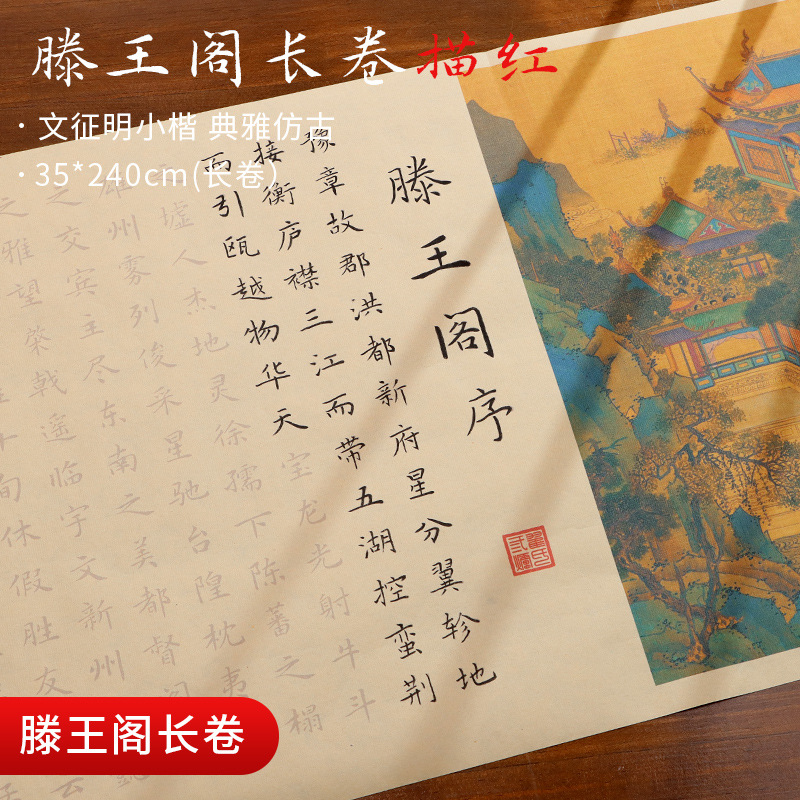 滕王阁长卷描红
·文征明小楷 典雅仿古
·35*240cm(长卷)
滕王阁序
豫章故郡洪都新府星分翼轸地
接衡庐襟三江而带五湖控蛮荆
而引瓯越物华天宝龙光射牛斗
墟人杰地灵徐孺下陈蕃之榻
州雾列俊采星驰台隍枕夷
之交宾主尽东南之美都督阎
之雅望棨戟遥临宇文新州
十旬休假胜友
滕王阁长卷